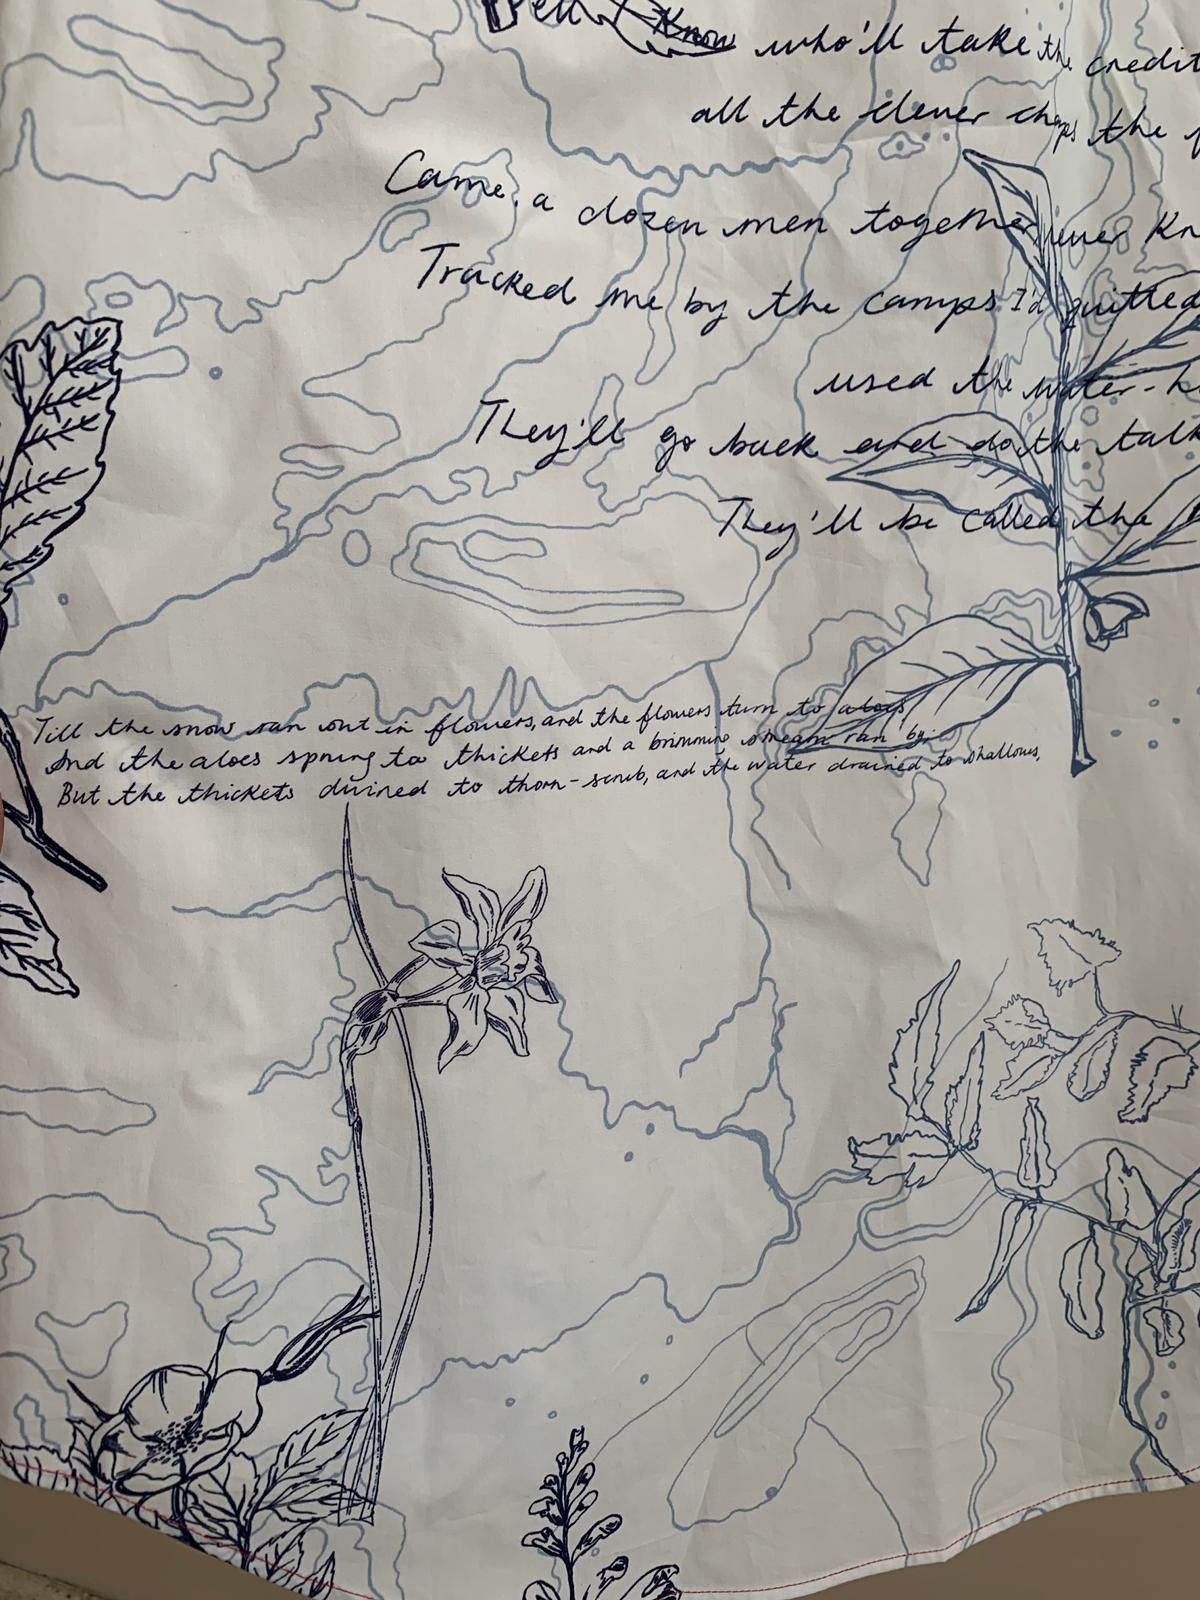 Well I Know who'll take the credit
all the clever chaps the
Came, a dozen men together never
Tracked me by the camps I'd quitted
used the water-
They'll go back and do the
They'll be called the
Till the snow ran out in flowers, and the flowers turn to aloes
And the aloes sprung to thickets and a brimming stream ran by;
But the thickets dwined to thorn-scrub, and the water drained to shallows,